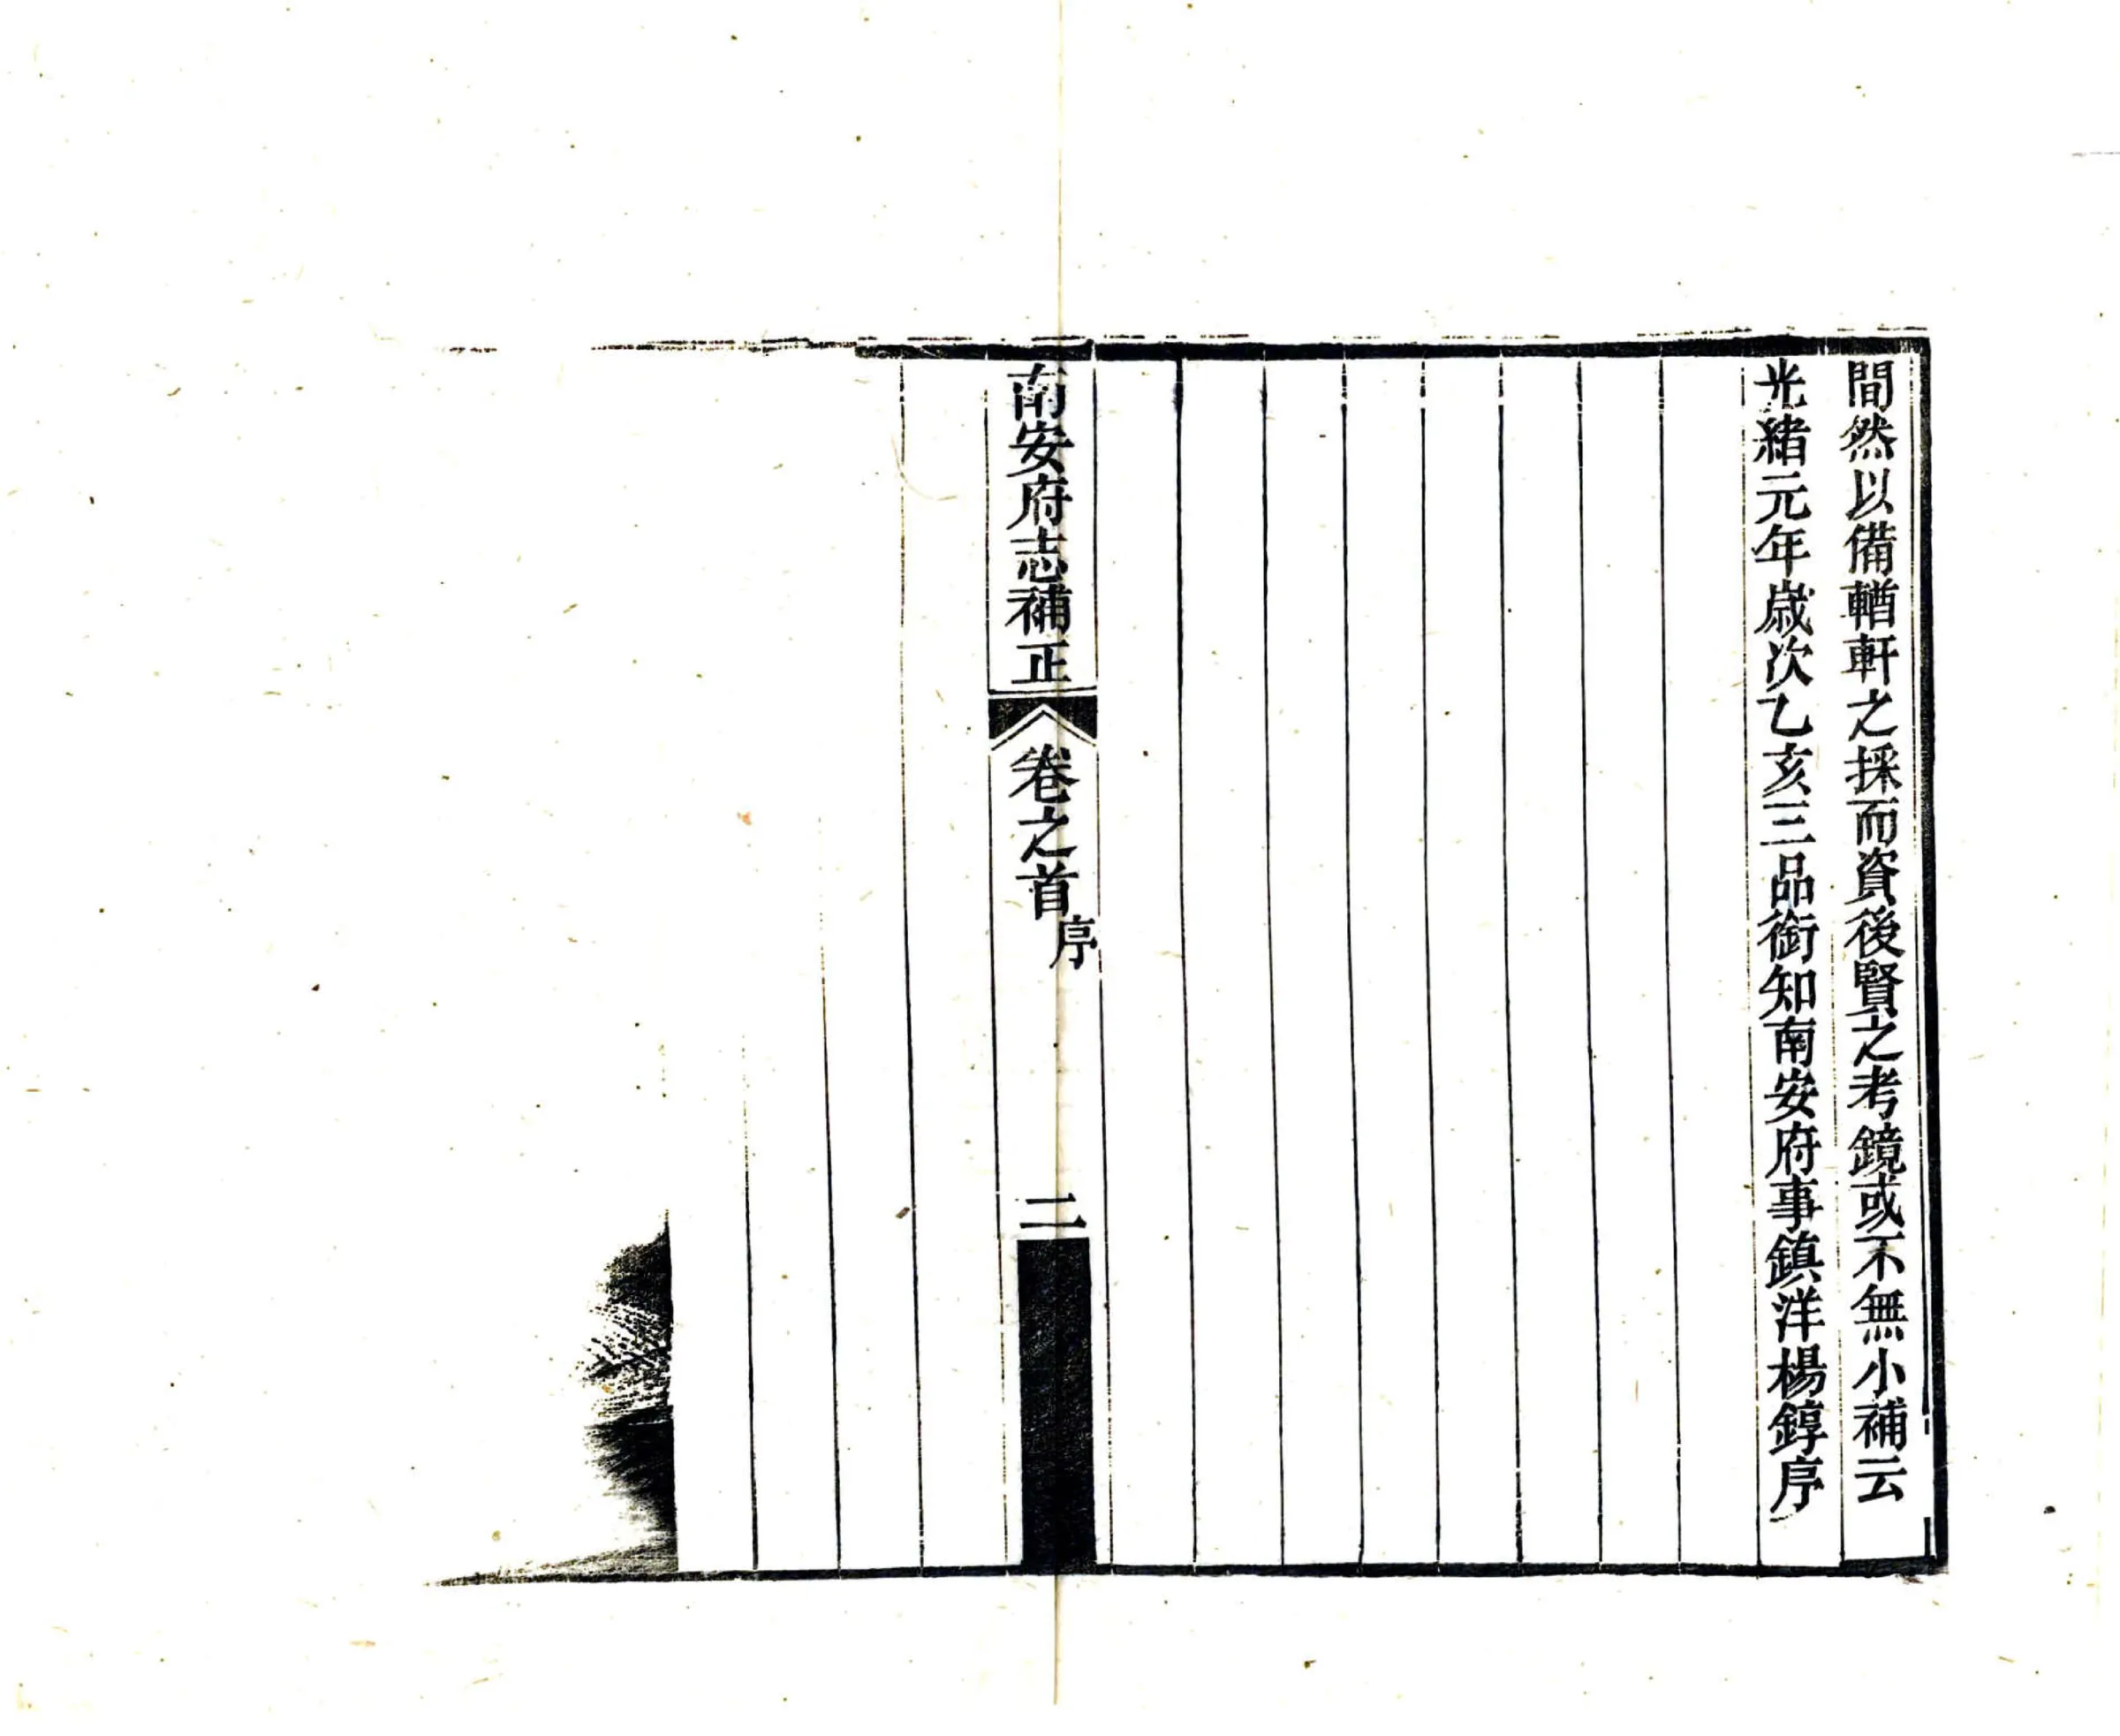 間然以備輶軒之採而資後賢之考鏡或不無小補云
光緒元年歲次乙亥三品銜知南安府事鎮洋楊錞序
南安府志補正
卷之首
序
二